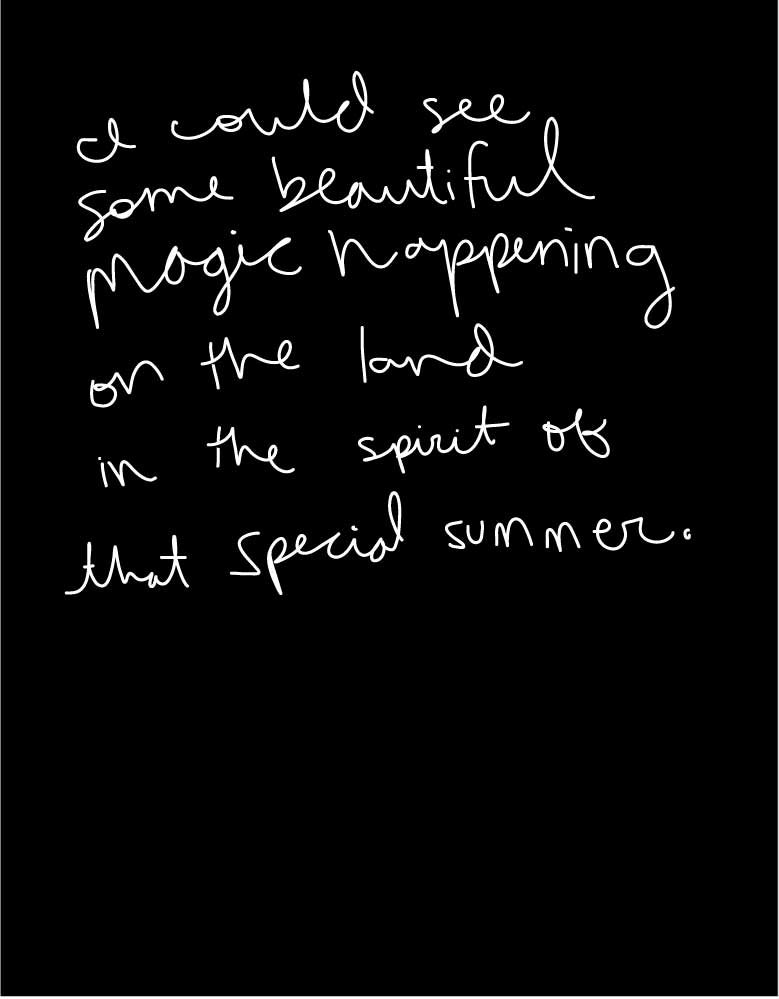 I could see
some beautiful
magic happening
on the land
in the spirit of
that special summer.